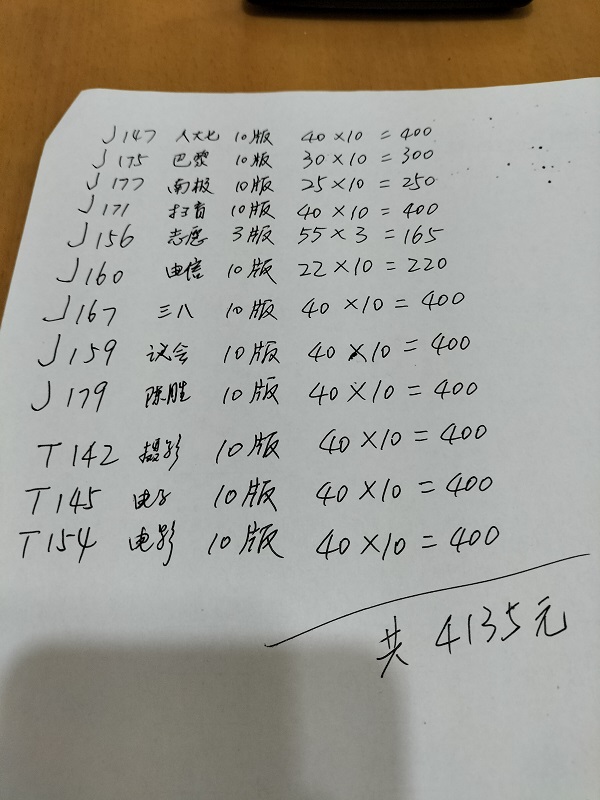 J147 人大七 10版 40×10=400
J175 巴黎 10版 30×10=300
J177 南极 10版 25×10=250
J171 扫盲 10版 40×10=400
J156 志愿 3版 55×3=165
J160 电信 10版 22×10=220
J167 三八 10版 40×10=400
J159 议会 10版 40×10=400
J179 陈胜 10版 40×10=400
T142 摄影 10版 40×10=400
T145 电子 10版 40×10=400
T154 电影 10版 40×10=400
共 4135元